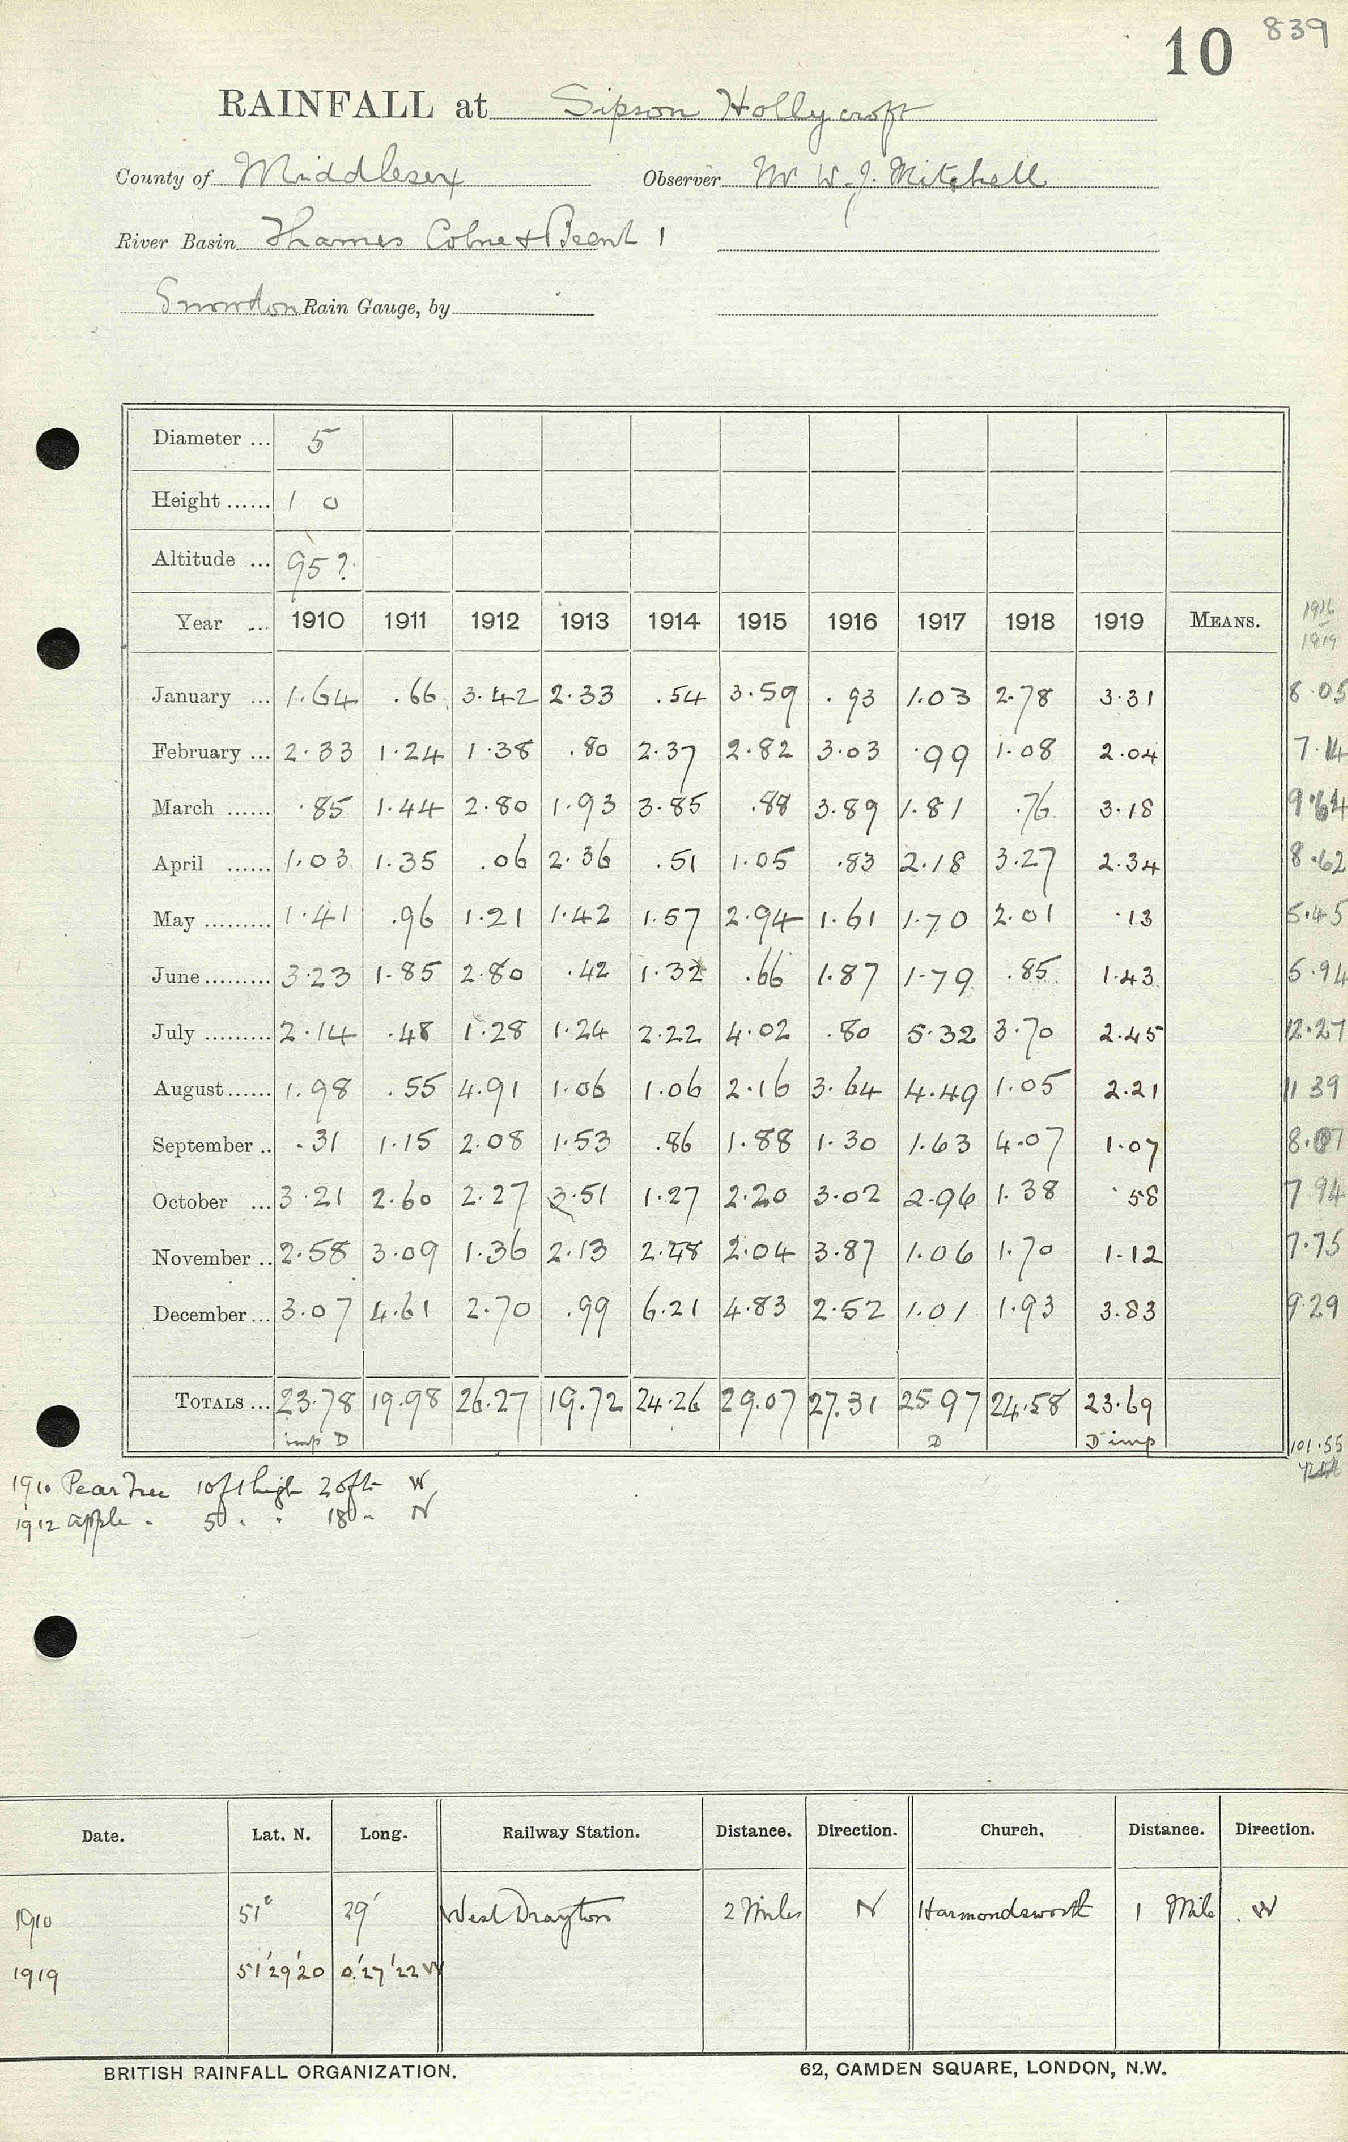 10 839
RAINFALL at Sipson Hollycroft
County of Middlesex Observer Mr W. J. Mitchell
River Basin Thames Colne & Brent 1
Snowdon Rain Gauge, by
Diameter ... 5
Height ...... 1 0
Altitude ... 95?
Year ... 1910 1911 1912 1913 1914 1915 1916 1917 1918 1919 MEANS. 1916 1919
January ... 1.64 .66 3.42 2.33 .54 3.59 .93 1.03 2.78 3.31 8.05
February ... 2.33 1.24 1.38 .80 2.37 2.82 3.03 .99 1.08 2.04 7.14
March ...... .85 1.44 2.80 1.93 3.85 .88 3.89 1.81 .76 3.18 9.64
April ...... 1.03 1.35 .06 2.36 .51 1.05 .83 2.18 3.27 2.34 8.62
May ......... 1.41 .96 1.21 1.42 1.57 2.94 1.61 1.70 2.01 .13 5.45
June ......... 3.23 1.85 2.80 .42 1.32 .66 1.87 1.79 .85 1.43 5.94
July ......... 2.14 .48 1.28 1.24 2.22 4.02 .80 5.32 3.70 2.45 12.27
August ...... 1.98 .55 4.91 1.06 1.06 2.16 3.64 4.49 1.05 2.21 11 39
September .. .31 1.15 2.08 1.53 .86 1.88 1.30 1.63 4.07 1.07 8.07
October ... 3.21 2.60 2.27 3.51 1.27 2.20 3.02 2.96 1.38 .58 7 94
November .. 2.58 3.09 1.36 2.13 2.48 2.04 3.87 1.06 1.70 1.12 7.75
December ... 3.07 4.61 2.70 .99 6.21 4.83 2.52 1.01 1.93 3.83 9.29
TOTALS ... 23.78 19.98 26.27 19.72 24.26 29.07 27.31 25.97 24.58 23.69
imp D D D imp 101.55
1910 Pear Tree 10ft high 20ft W
1912 apple " 50 " " 18 " N
Date. Lat. N. Long. Railway Station. Distance. Direction. Church. Distance. Direction.
1910 51° 29' West Drayton 2 Miles N Harmondsworth 1 Mile W
1919 51°29'20 0°27'22 W
BRITISH RAINFALL ORGANIZATION. 62, CAMDEN SQUARE, LONDON, N.W.